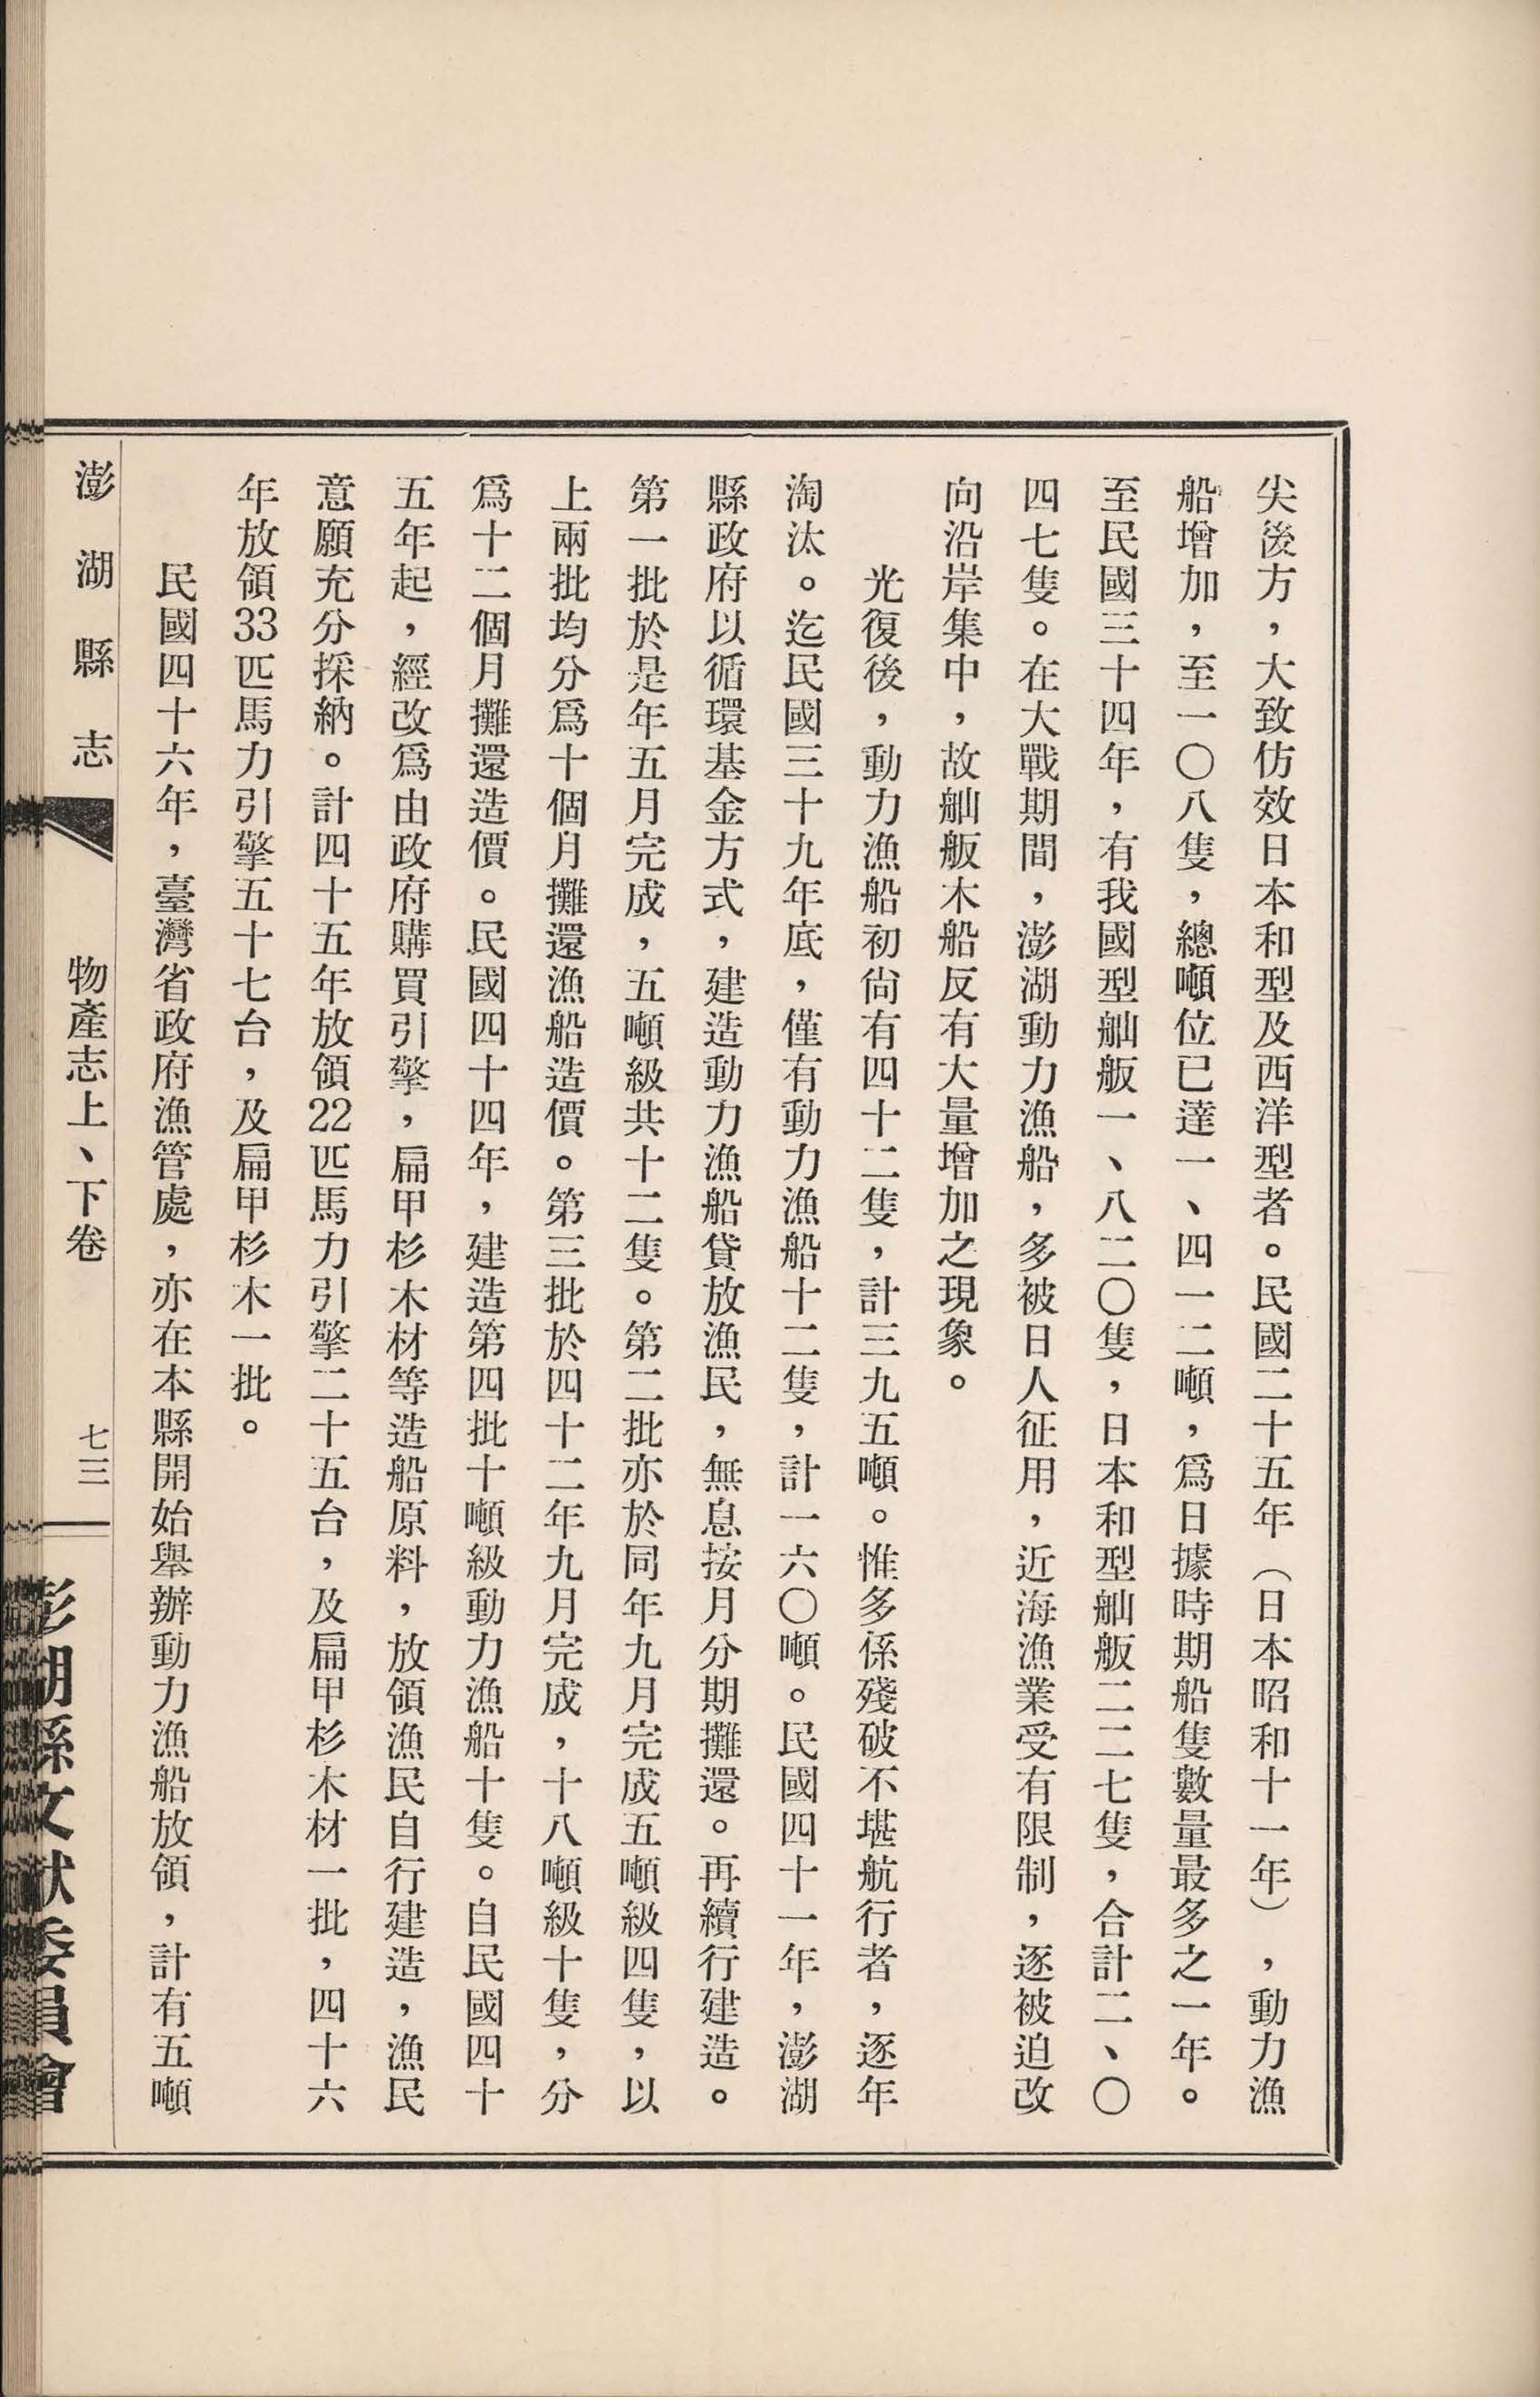 尖後方，大致仿效日本和型及西洋型者。民國二十五年（日本昭和十一年），動力漁
船增加，至一〇八隻，總噸位已達一、四一二噸，爲日據時期船隻數量最多之一年。
至民國三十四年，有我國型舢舨一、八二〇隻，日本和型舢舨二二七隻，合計二、〇
四七隻。在大戰期間，澎湖動力漁船，多被日人征用，近海漁業受有限制，逐被迫改
向沿岸集中，故舢舨木船反有大量增加之現象。
光復後，動力漁船初尙有四十二隻，計三九五噸。惟多係殘破不堪航行者，逐年
淘汰。迄民國三十九年底，僅有動力漁船十二隻，計一六〇噸。民國四十一年，澎湖
縣政府以循環基金方式，建造動力漁船貸放漁民，無息按月分期攤還。再續行建造。
第一批於是年五月完成，五噸級共十二隻。第二批亦於同年九月完成五噸級四隻，以
上兩批均分爲十個月攤還漁船造價。第三批於四十二年九月完成，十八噸級十隻，分
爲十二個月攤還造價。民國四十四年，建造第四批十噸級動力漁船十隻。自民國四十
五年起，經改爲由政府購買引擎，扁甲杉木材等造船原料，放領漁民自行建造，漁民
意願充分採納。計四十五年放領22匹馬力引擎二十五台，及扁甲杉木材一批，四十六
年放領33匹馬力引擎五十七台，及扁甲杉木一批。
民國四十六年，臺灣省政府漁管處，亦在本縣開始舉辦動力漁船放領，計有五噸
澎湖縣志
物產志上、下卷
七三
澎湖縣文獻委員會